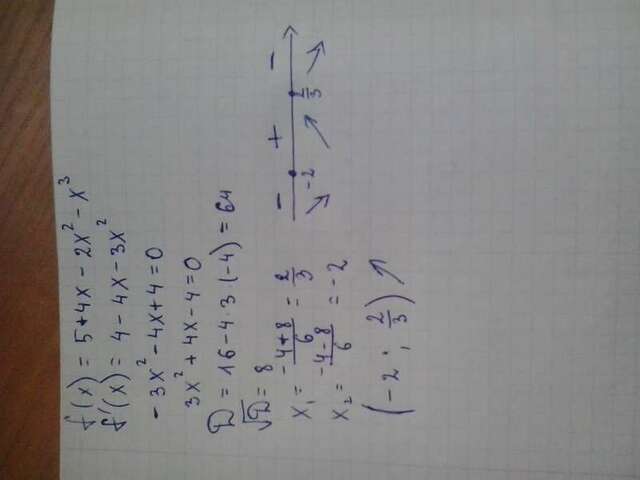 f(x) = 5+4x - 2x² - x³
f'(x) = 4 - 4x - 3x²
- 3x² - 4x + 4 = 0
3x² + 4x - 4 = 0
D = 16 - 4 · 3 · (-4) = 64
√D = 8
x₁ = (-4+8)/6 = 2/3
x₂ = (-4-8)/6 = -2
- + -
-2 2/3
↘ ↗ ↘
(-2 ; 2/3) ↗